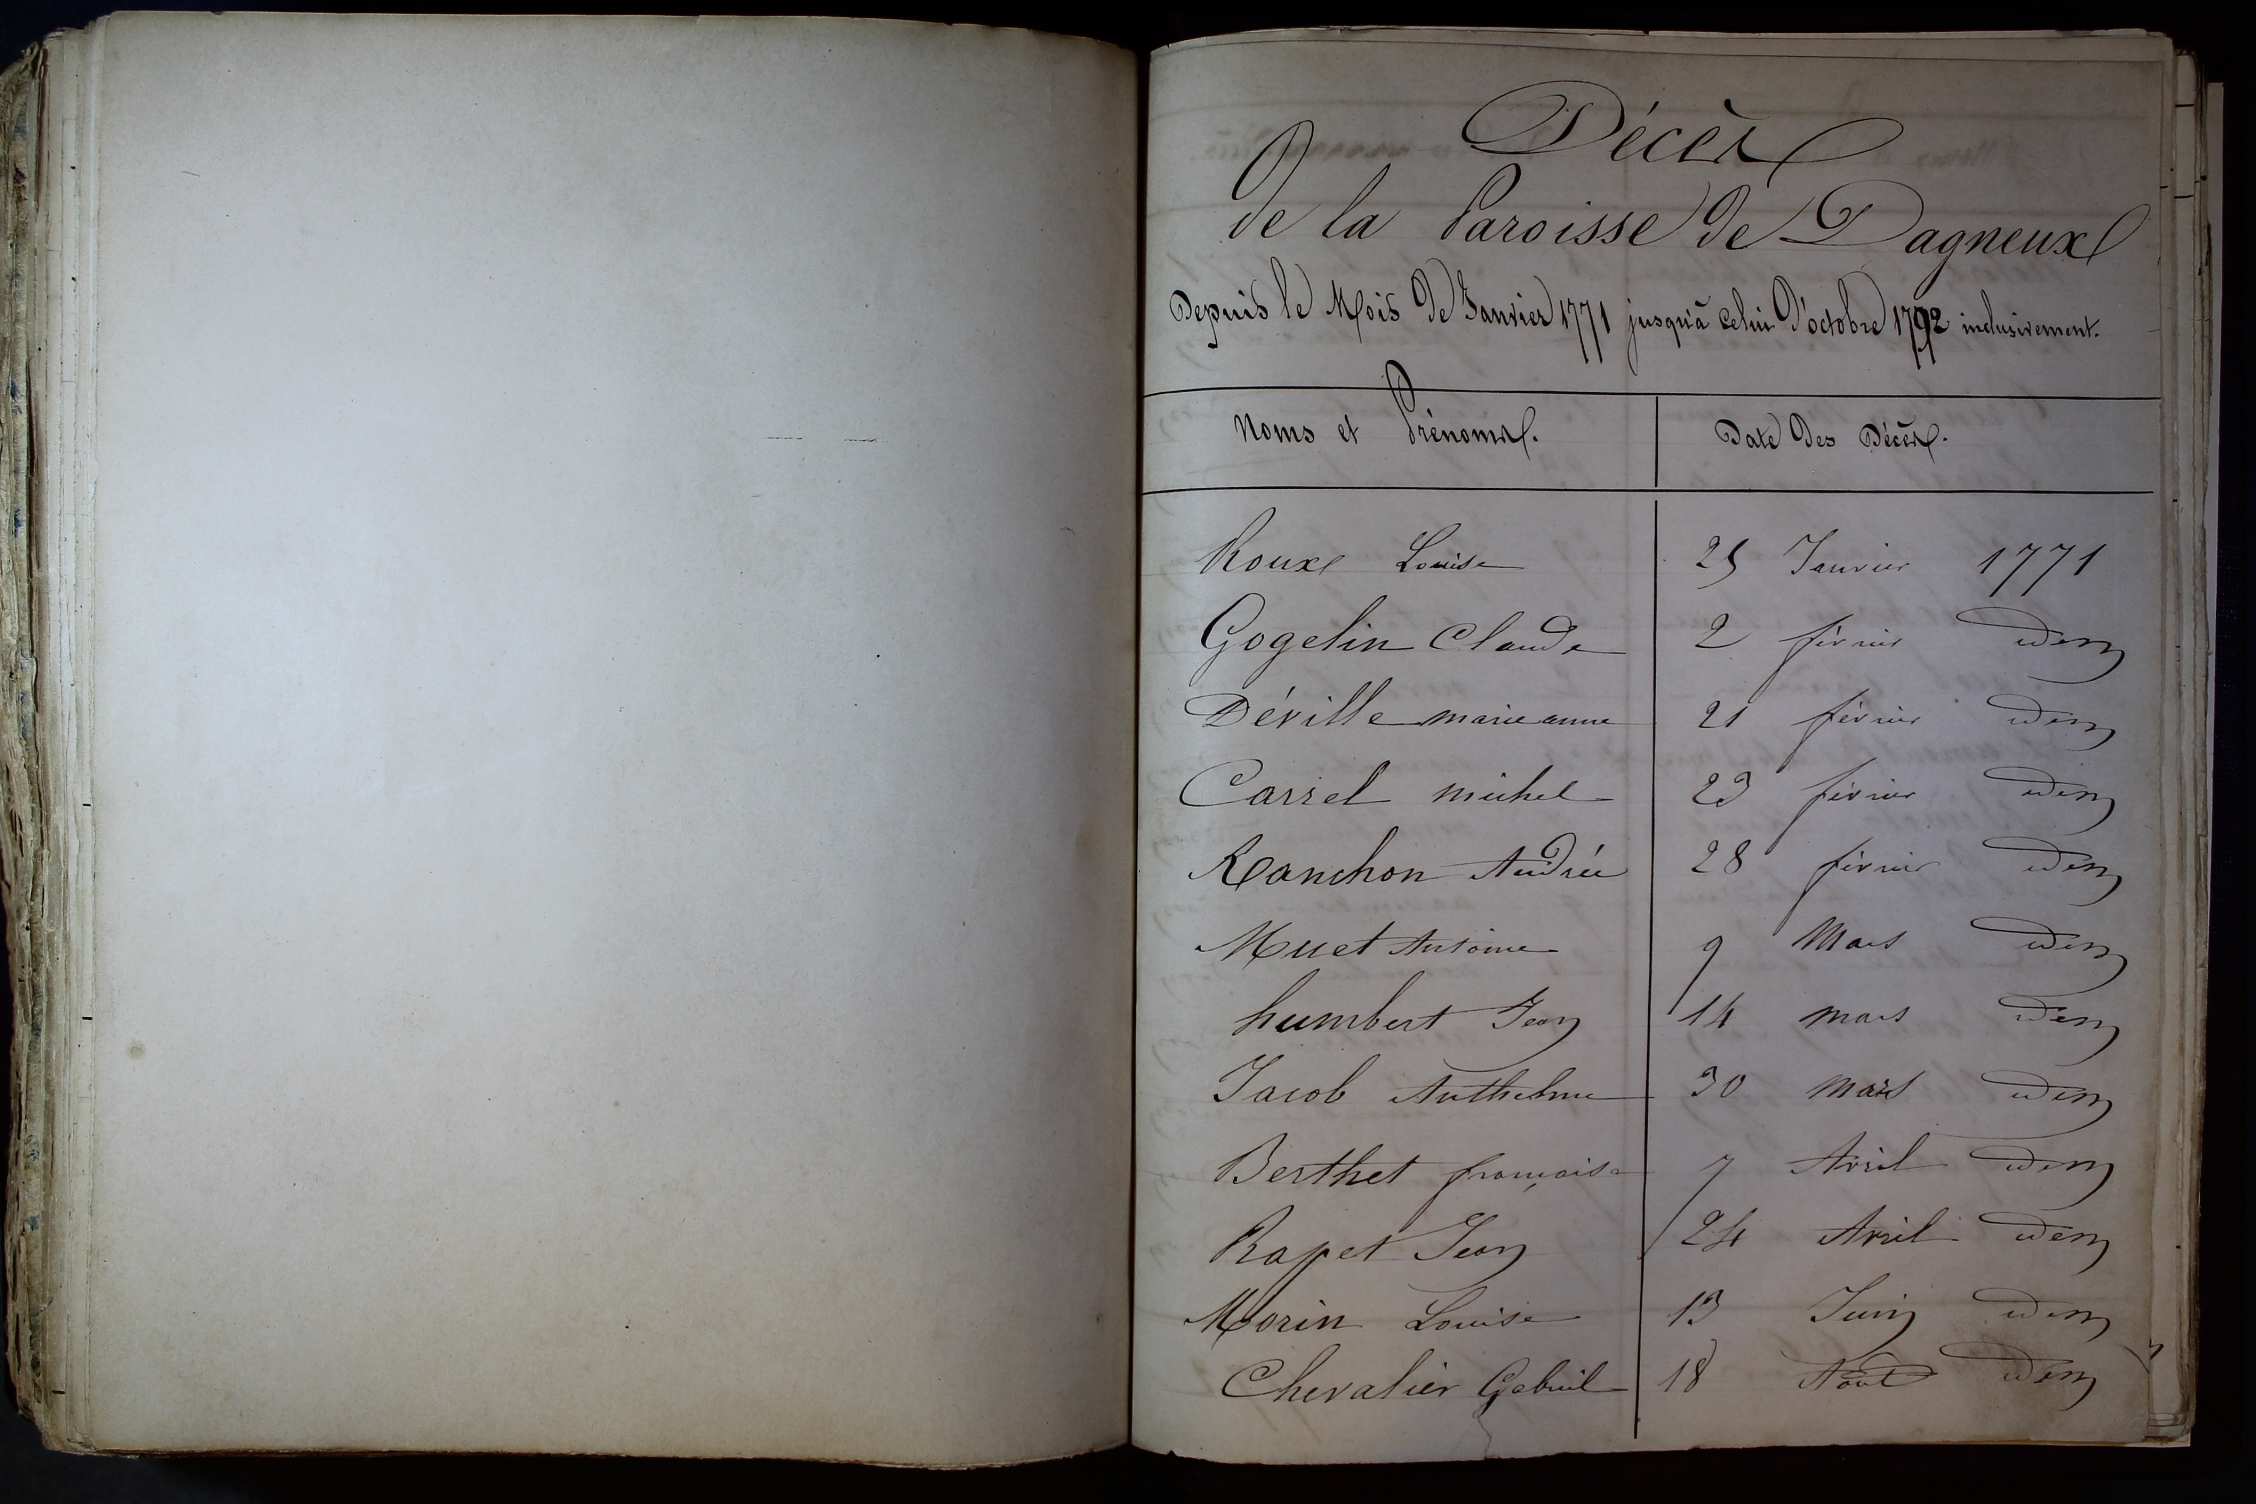 Décès
De la Paroisse de Dagneux
Depuis le Mois de Janvier 1771 jusqu'à celui d'octobre 1792 inclusivement.
Noms et Prénoms. Date des Décès.
Roux Louise 25 Janvier 1771
Gogelin Claude 2 février idem
Déville marie anne 21 février idem
Carrel michel 23 février idem
Ranchon Andrée 28 février idem
Muet Antoine 9 Mars idem
humbert Jean 14 mars idem
Jacob Anthelme 30 mars idem
Berthet françoise 7 Avril idem
Rapet Jean 24 Avril idem
Morin Louise 13 Juin idem
Chevalier Gabriel 18 Août idem